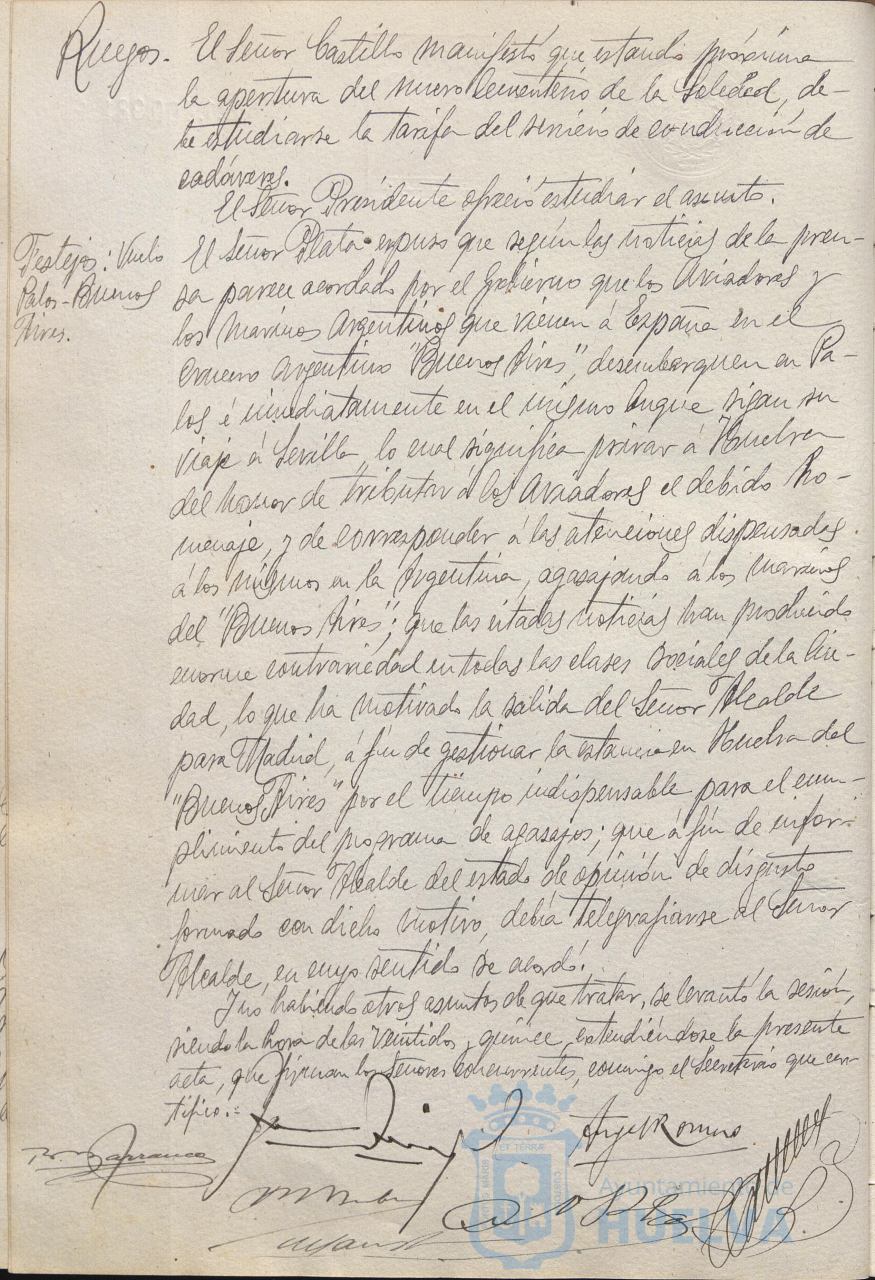 Ruegos. El Señor Castillo manifestó que estando próxima
la apertura del nuevo Cementerio de la Soledad, de-
be estudiarse la tarifa del servicio de conducción de
cadáveres.
El Señor Presidente ofreció estudiar el asunto.
Festejos: Vuelo
Palos-Buenos
Aires.
El Señor Plata expuso que según las noticias de la pren-
sa parece acordado por el Gobierno que los Aviadores y
los marinos Argentinos que vienen á España en el
crucero Argentino "Buenos Aires", desembarquen en Pa-
los é inmediatamente en el mismo buque sigan su
viaje á Sevilla, lo cual significa privar á Huelva
del honor de tributar á los Aviadores el debido ho-
menaje, y de corresponder á las atenciones dispensadas
á los mismos en la Argentina, agasajando á los marinos
del "Buenos Aires"; que las citadas noticias han producido
enorme contrariedad en todas las clases sociales de la Ciu-
dad, lo que ha motivado la salida del Señor Alcalde
para Madrid, á fin de gestionar la estancia en Huelva del
"Buenos Aires" por el tiempo indispensable para el cum-
plimiento del programa de agasajos; que á fin de infor-
mar al Señor Alcalde del estado de opinión de disgusto
formado con dicho motivo, debía telegrafiarse al Señor
Alcalde, en cuyo sentido se acordó.
Y no habiendo otros asuntos de que tratar, se levantó la sesión,
siendo la hora de las veintidos y quince, extendiéndose la presente
acta, que firman los Señores concurrentes, conmigo el Secretario que cer-
tifico.=
Barranco
Angel Romero
Ayuntamiento de
HUELVA